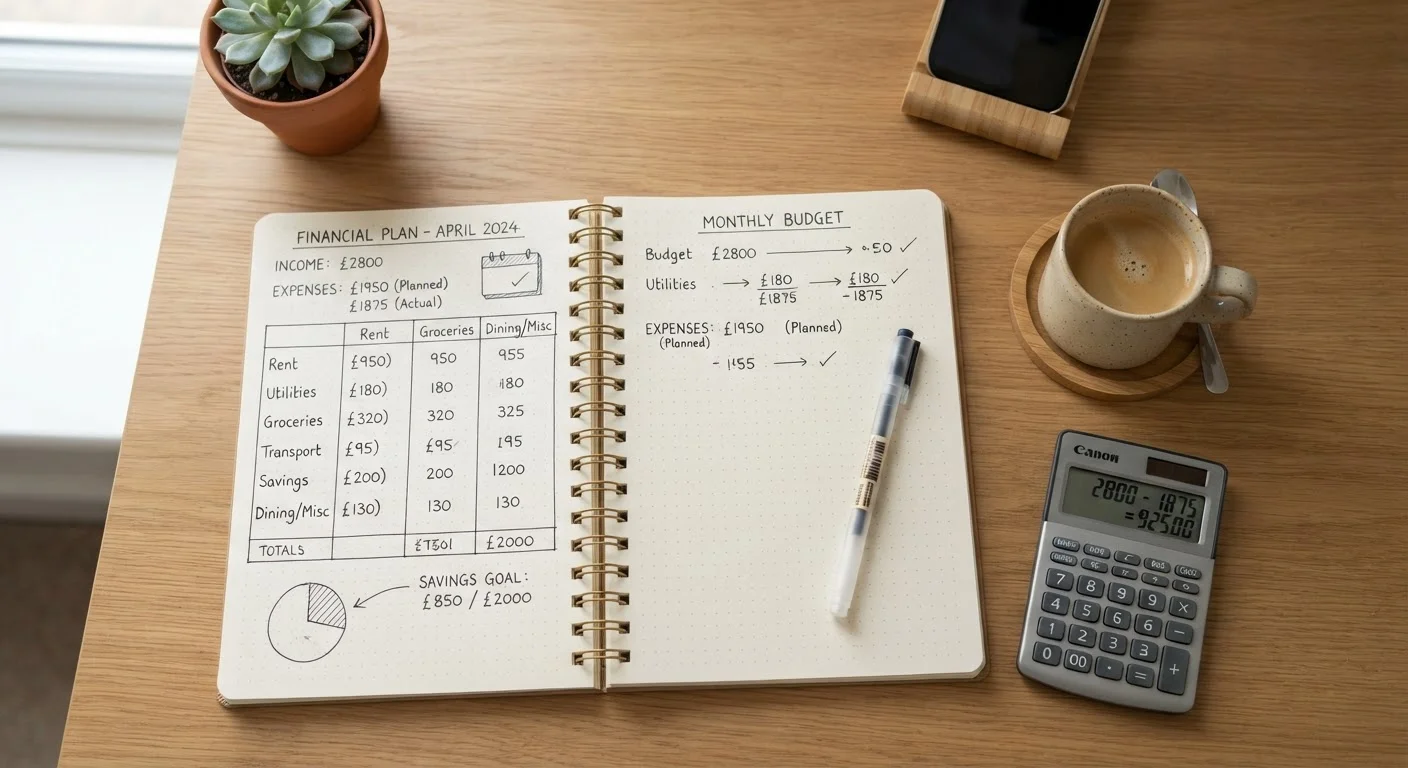 FINANCIAL PLAN – APRIL 2024
INCOME: £2800
EXPENSES: £1950 (Planned)
£1875 (Actual)
Rent Groceries Dining/Misc
Rent £950) 950 955
Utilities £180) 180 180
Groceries £320) 320 325
Transport £95) £95 195
Savings £200) 200 1200
Dining/Misc £130) 130 130
TOTALS £2000
SAVINGS GOAL:
£850 / £2000
MONTHLY BUDGET
Budget £2800 → ✓
Utilities → £180 → £180 ✓
£1875 -1875
EXPENSES: £1950 (Planned)
(Planned)
- 1155 → ✓
Canon
2800 - 1875
= 92500
7 8 9 9 ×
4 5 6 6 −
1 2 3 3 +
0 00 · =